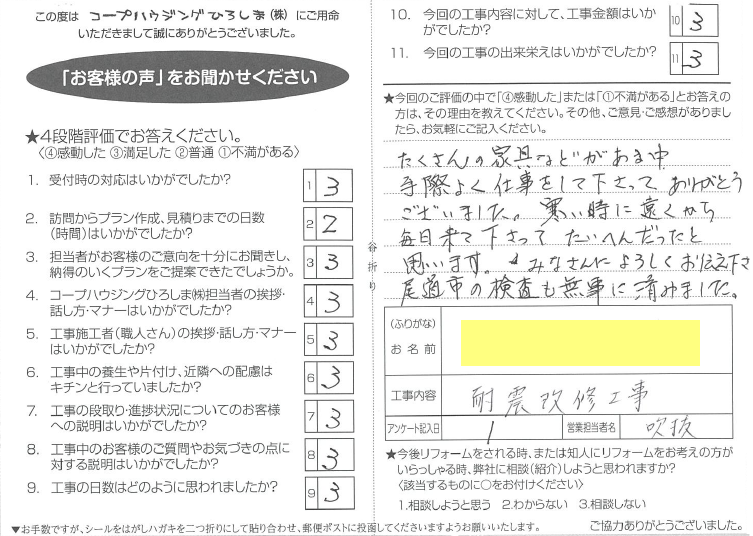 この度は コープハウジングひろしま(株) にご用命
いただきまして誠にありがとうございました。
「お客様の声」をお聞かせください
★4段階評価でお答えください。
〈④感動した ③満足した ②普通 ①不満がある〉
1. 受付時の対応はいかがでしたか?
1 3
2. 訪問からプラン作成、見積りまでの日数
(時間)はいかがでしたか?
2 2
3. 担当者がお客様のご意向を十分にお聞きし、
納得のいくプランをご提案できたでしょうか。
3 3
4. コープハウジングひろしま㈱担当者の挨拶・
話し方・マナーはいかがでしたか?
4 3
5. 工事施工者(職人さん)の挨拶・話し方・マナー
はいかがでしたか?
5 3
6. 工事中の養生や片付け、近隣への配慮は
キチンと行っていましたか?
6 3
7. 工事の段取り・進捗状況についてのお客様
への説明はいかがでしたか?
7 3
8. 工事中のお客様のご質問やお気づきの点に
対する説明はいかがでしたか?
8 3
9. 工事の日数はどのように思われましたか?
9 3
▼お手数ですが、シールをはがしハガキを二つ折りにして貼り合わせ、郵便ポストに投函してくださいますようお願いいたします。
谷折り
10. 今回の工事内容に対して、工事金額はいか
がでしたか?
10 3
11. 今回の工事の出来栄えはいかがでしたか?
11 3
★今回のご評価の中で「④感動した」または「①不満がある」とお答えの
方は、その理由を教えてください。その他、ご意見・ご感想がありまし
たら、お気軽にご記入ください。
たくさんの家具などがある中
手際よく仕事をして下さって ありがとう
ございました。寒い時に遠くから
毎日来て下さって たいへんだったと
思います。みなさんによろしくお伝え下さ
尾道市の検査も無事に済みました。
(ふりがな)
お名前
工事内容
耐震改修工事
アンケート記入日
/
営業担当者名
吹抜
★今後リフォームをされる時、または知人にリフォームをお考えの方が
いらっしゃる時、弊社に相談(紹介)しようと思われますか?
〈該当するものに○をお付けください〉
1.相談しようと思う 2.わからない 3.相談しない
ご協力ありがとうございました。